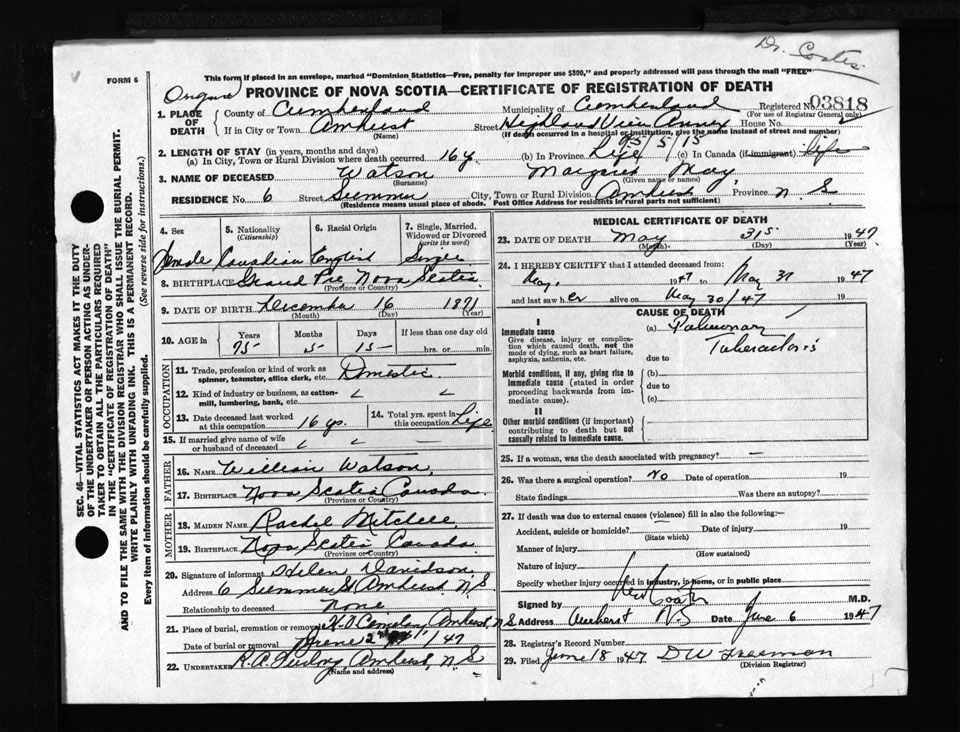 Dr. Coates
FORM 6
This form if placed in an envelope, marked "Dominion Statistics—Free, penalty for improper use $300," and properly addressed will pass through the mail "FREE"
PROVINCE OF NOVA SCOTIA—CERTIFICATE OF REGISTRATION OF DEATH
1. PLACE OF DEATH
County of Cumberland Municipality of Cumberland Registered No. 03818
(For use of Registrar General only)
If in City or Town Amherst Street Highland View Annex House No.
(Name) (If death occurred in a hospital or institution, give the name instead of street and number)
95/5/15
2. LENGTH OF STAY (in years, months and days)
(a) In City, Town or Rural Division where death occurred 16 y. (b) In Province Life (c) In Canada (if immigrant) life
3. NAME OF DECEASED Watson Margaret May
(Surname) (Given name or names)
RESIDENCE No. 6 Street Summer City, Town or Rural Division Amherst Province N. S
(Residence means usual place of abode. Post Office Address for residents in rural parts not sufficient)
4. Sex Female
5. Nationality (Citizenship) Canadian
6. Racial Origin English
7. Single, Married, Widowed or Divorced (write the word) Single
8. BIRTHPLACE Grand Pre, Nova Scotia
(Province or Country)
9. DATE OF BIRTH December 16 1871
(Month) (Day) (Year)
10. AGE in Years Months Days If less than one day old
75 5 15 hrs. or min.
OCCUPATION
11. Trade, profession or kind of work as spinner, teamster, office clerk, etc. Domestic
12. Kind of industry or business, as cotton-mill, lumbering, bank, etc.
13. Date deceased last worked at this occupation 16 yo.
14. Total yrs. spent in this occupation Life
15. If married give name of wife or husband of deceased
FATHER
16. NAME William Watson
17. BIRTHPLACE Nova Scotia Canada
(Province or Country)
MOTHER
18. MAIDEN NAME Rachel Mitchell
19. BIRTHPLACE Nova Scotia Canada
(Province or Country)
20. Signature of informant Helen Davidson
Address 6 Summer St Amherst N S
Relationship to deceased None
21. Place of burial, cremation or removal Cemetery, Amherst, N S
Date of burial or removal June 2nd /47
22. UNDERTAKER Amherst, N S
(Name and address)
MEDICAL CERTIFICATE OF DEATH
23. DATE OF DEATH May 31st 1947
(Month) (Day) (Year)
24. I HEREBY CERTIFY that I attended deceased from:
May, 1947 to May 31 1947
and last saw her alive on May 30/47 19
CAUSE OF DEATH
I
Immediate cause
Give disease, injury or complication which caused death, not the mode of dying, such as heart failure, asphyxia, asthenia, etc.
(a) Pulmonary Tuberculosis
due to
Morbid conditions, if any, giving rise to immediate cause (stated in order proceeding backwards from immediate cause).
(b)
due to
(c)
II
Other morbid conditions (if important) contributing to death but not causally related to immediate cause.
25. If a woman, was the death associated with pregnancy? —
26. Was there a surgical operation? No Date of operation 19
State findings Was there an autopsy?
27. If death was due to external causes (violence) fill in also the following:—
Accident, suicide or homicide? Date of injury 19
(State which)
Manner of injury
(How sustained)
Nature of injury
Specify whether injury occurred in industry, in home, or in public place
Signed by M.D.
Address Amherst N.S Date June 6 1947
28. Registrar's Record Number
29. Filed June 18 1947 D W Freeman
(Division Registrar)
SEC. 46—VITAL STATISTICS ACT MAKES IT THE DUTY
OF THE UNDERTAKER OR PERSON ACTING AS UNDER-
TAKER TO OBTAIN ALL THE PARTICULARS REQUIRED
IN THE "CERTIFICATE OF REGISTRATION OF DEATH"
AND TO FILE THE SAME WITH THE DIVISION REGISTRAR WHO SHALL ISSUE THE BURIAL PERMIT.
WRITE PLAINLY WITH UNFADING INK. THIS IS A PERMANENT RECORD.
Every item of information should be carefully supplied. (See reverse side for instructions.)